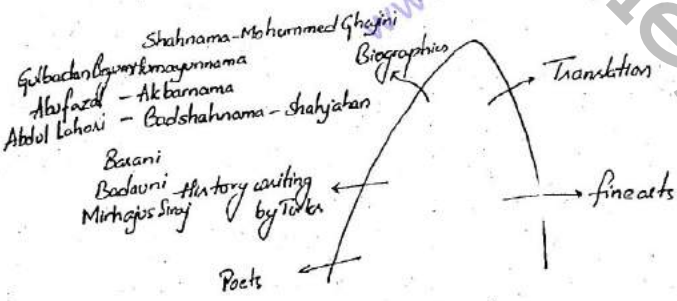 Shahnama-Mohammed Ghajini
Gulbadan Begum-Humayunnama
Abufazal - Akbarnama
Abdul Lahori - Badshahnama - Shahjahan
Biographies
Translation
Barani
Badauni - History writing
Minhajus Siraj by Turks
fine arts
Poets
www.